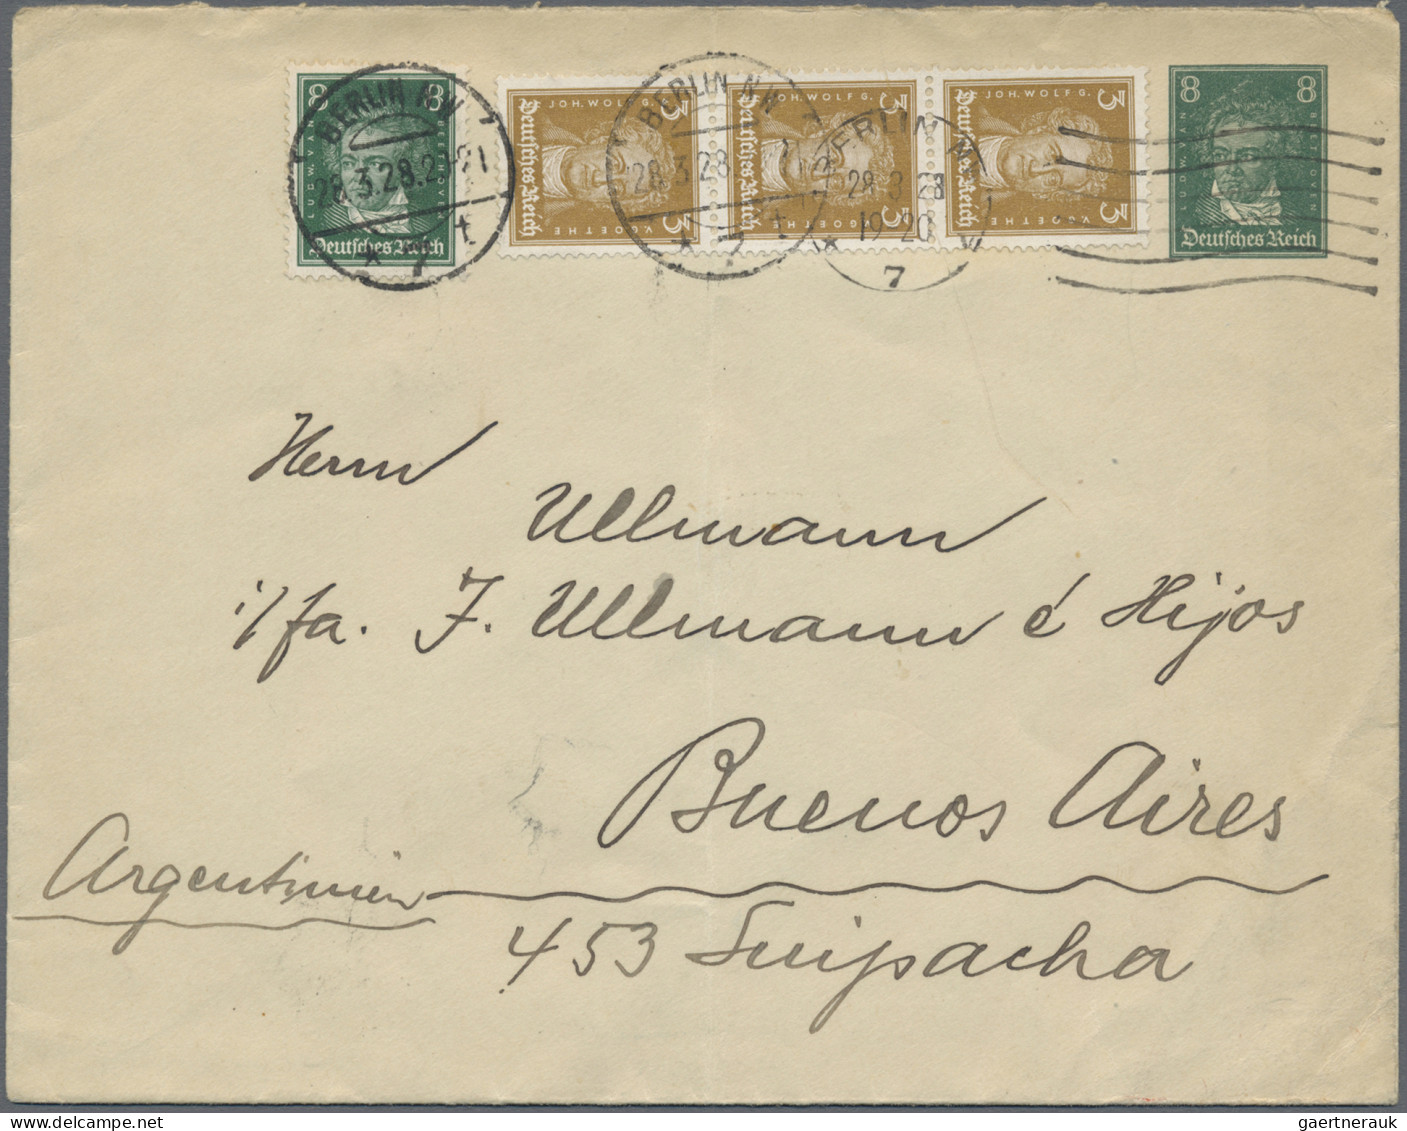 8 8
Deutsches Reich
BERLIN NW
28.3.28.20-21
* 7 t
3 JOH. WOLFG. 3
Deutsches Reich
3 JOH. WOLFG. 3
Deutsches Reich
V. GOETHE
3 3
Deutsches Reich
V. GOETHE
BERLIN NW
28.3.28
* 7 t
BERLIN N
28.3.28
19-20
7
8 8
LUDW. VAN BEETHOVEN
Deutsches Reich
Herrn
Ullmann
i/fa. J. Ullmann é Hijos
Buenos Aires
Argentinien
453 Suipacha
gaertnerauk